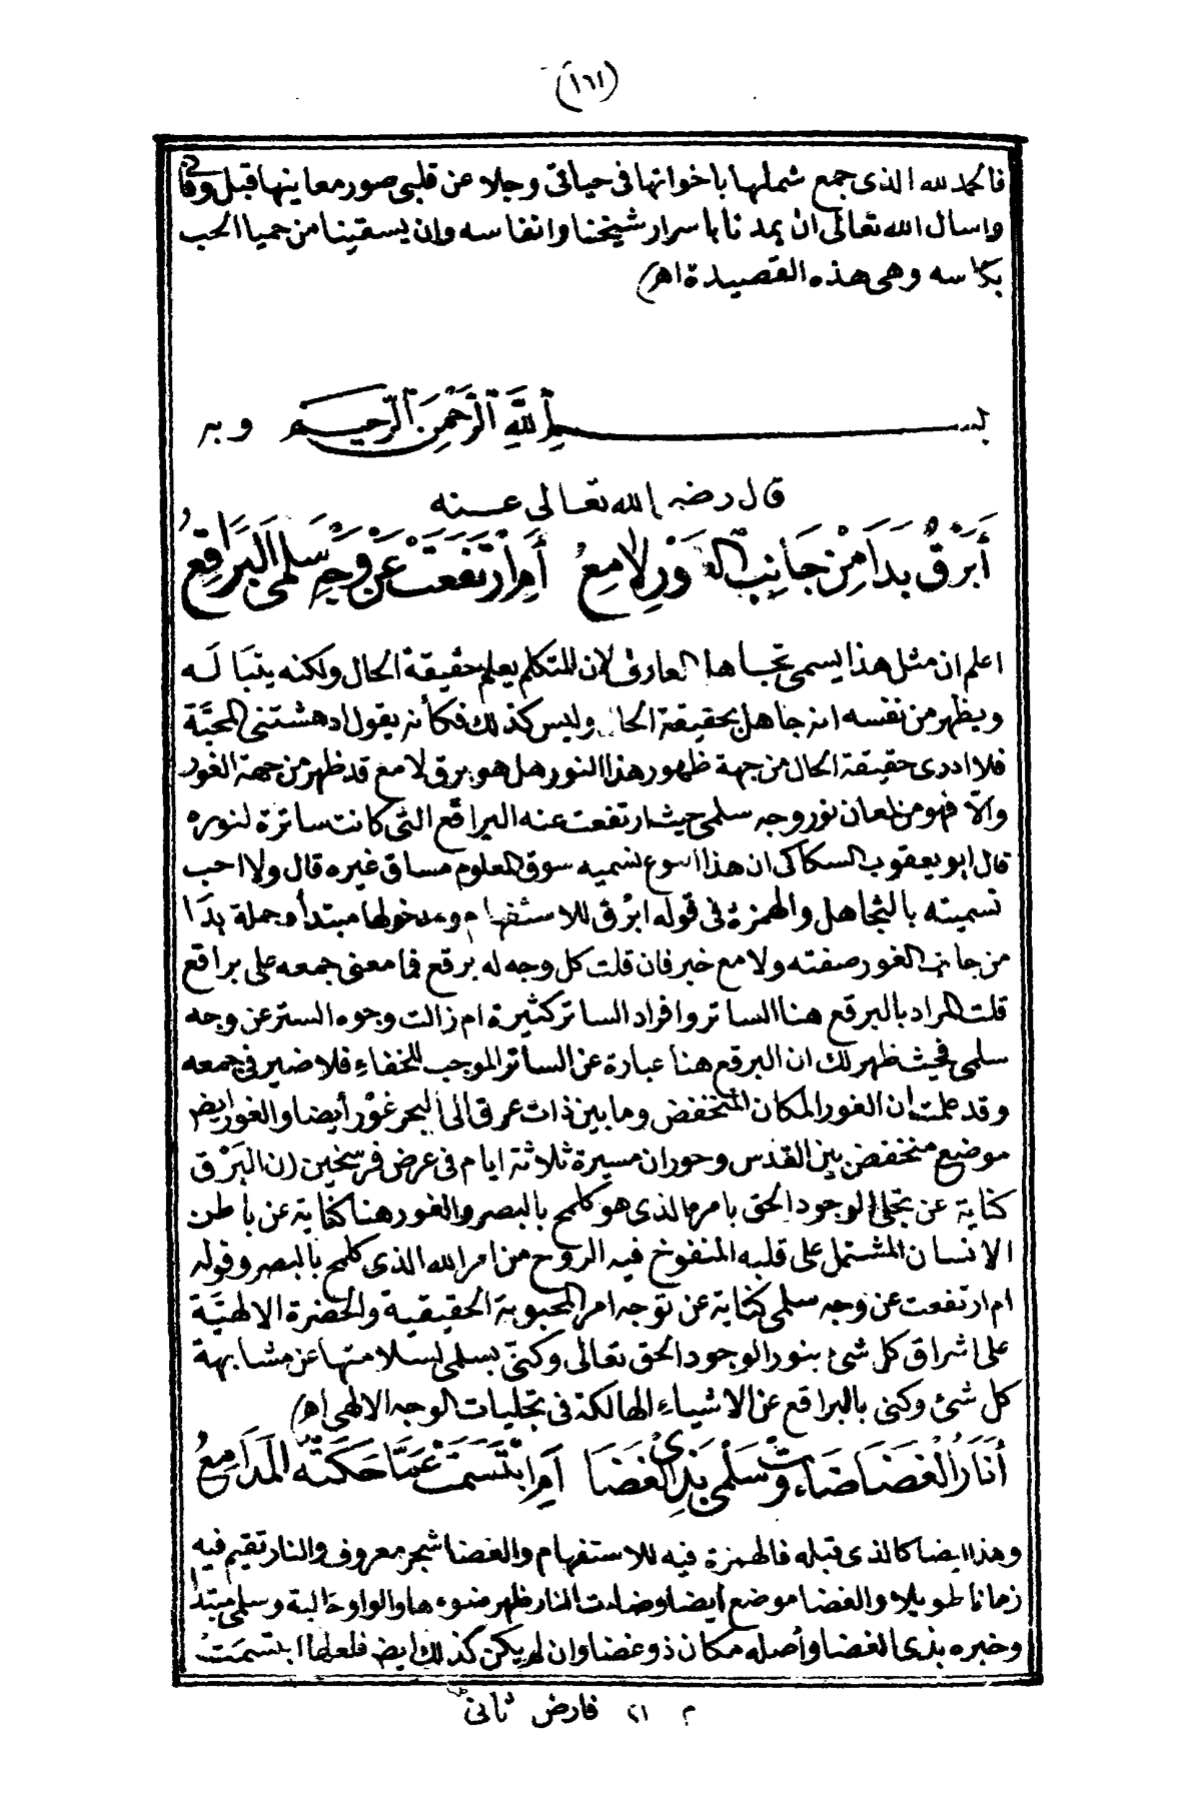 (١٦١)
فالحمد لله الذى جمع شملها باخواتها فى حياتى وجلا عن قلبى صور معاينها قبل وفاتى
واسال الله تعالى ان يمدنا باسرار شيخنا وانفاسه وان يسقينا من حميا الحب
بكاسه وهى هذه القصيدة اهـ)
بسم الله الرحمن الرحيم وبه
قال رضى الله تعالى عنه
أَبَرْقٌ بَدَا مِنْ جَانِبِ الغَوْرِ لامِعُ أَمِ ارْتَفَعَتْ عَنْ وَجْهِ سَلْمَى البَرَاقِعُ
اعلم ان مثل هذا يسمى تجاهل العارف لان المتكلم يعلم حقيقة الحال ولكنه يتباله
ويظهر من نفسه انه جاهل بحقيقة الحال وليس كذلك فكأنه يقول ادهشتنى المحبَّة
فلا ادرى حقيقة الحال من جهة ظهور هذا النور هل هو برق لامع قد ظهر من جهة الغور
والّا فهو من لعان نور وجه سلمى حيث ارتفعت عنه البراقع التى كانت ساترة لنوره
قال ابو يعقوب السكاكى ان هذا النوع نسميه سوق المعلوم مساق غيره قال ولا احب
تسميته بالتجاهل والهمزة فى قوله ابرْق للاستفهام ومدخولها مبتدأ وجملة بدَا
من جانب الغور صفته ولامع خبر فان قلت كل وجه له برقع فما معنى جمعه على براقع
قلت المراد بالبرقع هنا الساتر وافراد الساتر كثيرة ام زالت وجوه الستر عن وجه
سلمى فحيث ظهر لك ان البرقع هنا عبارة عن الساتر الموجب للخفاء فلا ضير فى جمعه
وقد علمت ان الغور المكان المنخفض وما بين ذات عرق الى البحر غوْر أيضا والغور ايض
موضع منخفض بين القدس وحوران مسيرة ثلاثة ايام فى عرض فرسخين (ن البَرْق
كناية عن تجلى الوجود الحق بامره الذى هو كلمح بالبصر والغور هنا كناية عن باطن
الانسان المشتمل على قلبه المنفوخ فيه الروح من امر الله الذى كلمح بالبصر وقوله
ام ارتفعت عن وجه سلمى كناية عن توجه امر المحبوبة الحقيقية والحضرة الالهيَّة
على اشراق كل شئ بنور الوجود الحق تعالى وكنىّ بسلمى لسلامتها عن مشابهة
كل شئ وكنى بالبراقع عن الاشياء الهالكة فى تجليات الوجه الالهى اهـ)
أَنَارُ الغَضَا ضَاءَتْ وَسَلْمَى بِذِى الغَضَا أَمِ ابْتَسَمَتْ عَمَّا حَكَتْهُ المَدَامِعُ
وهذا ايضا كالذى قبله فالهمزة فيه للاستفهام والغضا شجر معروف والنار تقيم فيه
زمانا طويلا والغضا موضع أيضا وضاءت النار ظهر ضوءها والواو حالية وسلمى مبتدا
وخبره بذى الغضا وأصله مكان ذو غضا وان لم يكن كذلك ايض فلعلها ابتسمَتْ
م ٢١ فارض ثانى